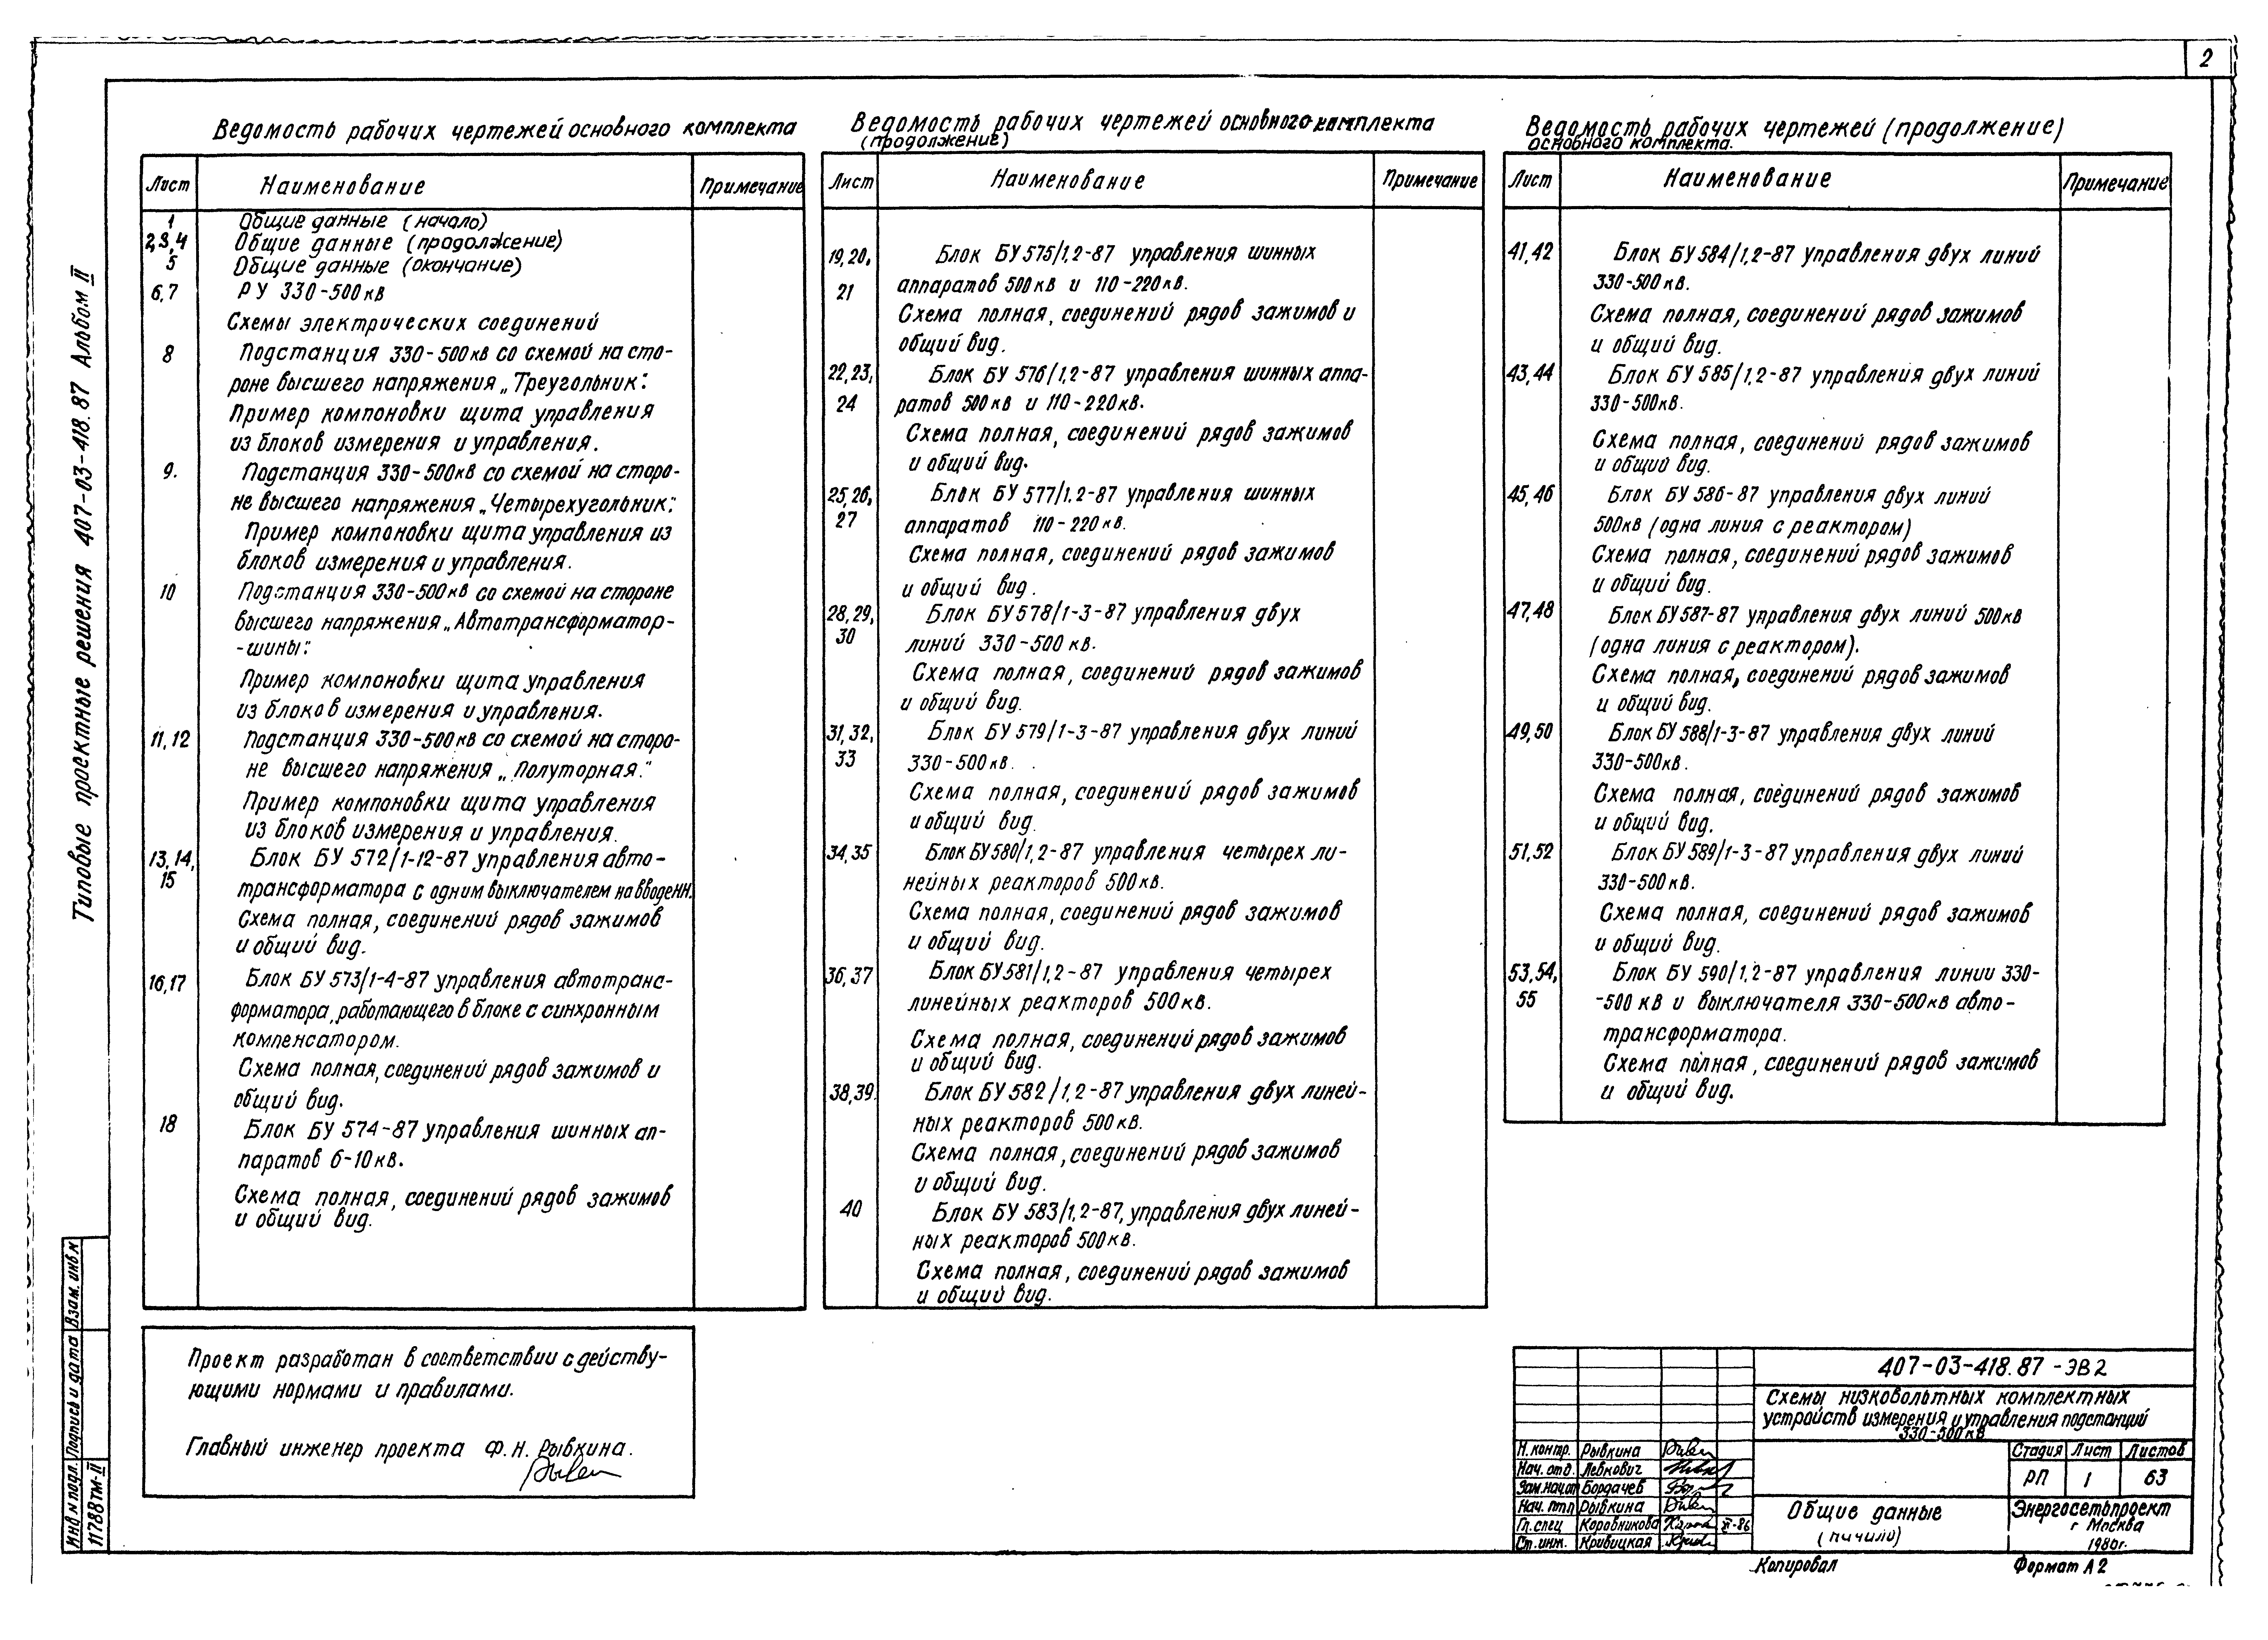 2
Типовые проектные решения 407-03-418.87 Альбом II
Ведомость рабочих чертежей основного комплекта
Лист Наименование Примечание
1 Общие данные (начало)
2,3,4 Общие данные (продолжение)
5 Общие данные (окончание)
6,7 РУ 330-500кв
Схемы электрических соединений
8 Подстанция 330-500кв со схемой на сто-
роне высшего напряжения „Треугольник".
Пример компоновки щита управления
из блоков измерения и управления.
9. Подстанция 330-500кв со схемой на сторо-
не высшего напряжения „Четырехугольник".
Пример компоновки щита управления из
блоков измерения и управления.
10 Подстанция 330-500кв со схемой на стороне
высшего напряжения „Автотрансформатор-
-шины".
Пример компоновки щита управления
из блоков измерения и управления.
11,12 Подстанция 330-500кв со схемой на сторо-
не высшего напряжения „Полуторная."
Пример компоновки щита управления
из блоков измерения и управления.
13,14, Блок БУ 572/1-12-87 управления авто-
15 трансформатора с одним выключателем на вводе нн.
Схема полная, соединений рядов зажимов
и общий вид.
16,17 Блок БУ 573/1-4-87 управления автотранс-
форматора, работающего в блоке с синхронным
компенсатором.
Схема полная, соединений рядов зажимов и
общий вид.
18 Блок БУ 574-87 управления шинных ап-
паратов 6-10кв.
Схема полная, соединений рядов зажимов
и общий вид.
Ведомость рабочих чертежей основного комплекта
(продолжение)
Лист Наименование Примечание
19,20, Блок БУ 575/1,2-87 управления шинных
21 аппаратов 500кв и 110-220кв.
Схема полная, соединений рядов зажимов и
общий вид.
22,23, Блок БУ 576/1,2-87 управления шинных аппа-
24 ратов 500кв и 110-220кв.
Схема полная, соединений рядов зажимов
и общий вид.
25,26, Блок БУ 577/1,2-87 управления шинных
27 аппаратов 110-220кв.
Схема полная, соединений рядов зажимов
и общий вид.
28,29, Блок БУ 578/1-3-87 управления двух
30 линий 330-500кв.
Схема полная, соединений рядов зажимов
и общий вид.
31,32, Блок БУ 579/1-3-87 управления двух линий
33 330-500кв.
Схема полная, соединений рядов зажимов
и общий вид.
34,35 Блок БУ 580/1,2-87 управления четырех ли-
нейных реакторов 500кв.
Схема полная, соединений рядов зажимов
и общий вид.
36,37 Блок БУ 581/1,2-87 управления четырех
линейных реакторов 500кв.
Схема полная, соединений рядов зажимов
и общий вид.
38,39 Блок БУ 582/1,2-87 управления двух линей-
ных реакторов 500кв.
Схема полная, соединений рядов зажимов
и общий вид.
40 Блок БУ 583/1,2-87, управления двух линей-
ных реакторов 500кв.
Схема полная, соединений рядов зажимов
и общий вид.
Ведомость рабочих чертежей (продолжение)
основного комплекта.
Лист Наименование Примечание
41,42 Блок БУ 584/1,2-87 управления двух линий
330-500кв.
Схема полная, соединений рядов зажимов
и общий вид.
43,44 Блок БУ 585/1,2-87 управления двух линий
330-500кв.
Схема полная, соединений рядов зажимов
и общий вид.
45,46 Блок БУ 586-87 управления двух линий
500кв (одна линия с реактором)
Схема полная, соединений рядов зажимов
и общий вид.
47,48 Блок БУ 587-87 управления двух линий 500кв
(одна линия с реактором).
Схема полная, соединений рядов зажимов
и общий вид.
49,50 Блок БУ 588/1-3-87 управления двух линий
330-500кв.
Схема полная, соединений рядов зажимов
и общий вид.
51,52 Блок БУ 589/1-3-87 управления двух линий
330-500кв.
Схема полная, соединений рядов зажимов
и общий вид.
53,54, Блок БУ 590/1,2-87 управления линии 330-
55 -500 кв и выключателя 330-500кв авто-
трансформатора.
Схема полная, соединений рядов зажимов
и общий вид.
Проект разработан в соответствии с действу-
ющими нормами и правилами.
Главный инженер проекта Ф.Н. Рывкина.
Инв № подл. Подпись и дата Взам. инв №
11788тм-II
407-03-418.87 -ЭВ2
Схемы низковольтных комплектных
устройств измерения и управления подстанций
330-500кв
Н.контр. Рывкина
Нач. отд. Левкович
Зам.нач.от Бордачев
Нач. птп Рывкина
Гл.спец Коровникова XI-86
Ст.инж. Кривицкая
Стадия Лист Листов
РП 1 63
Общие данные
(начало)
Энергосетьпроект
г Москва
1986г.
Копировал Формат А2